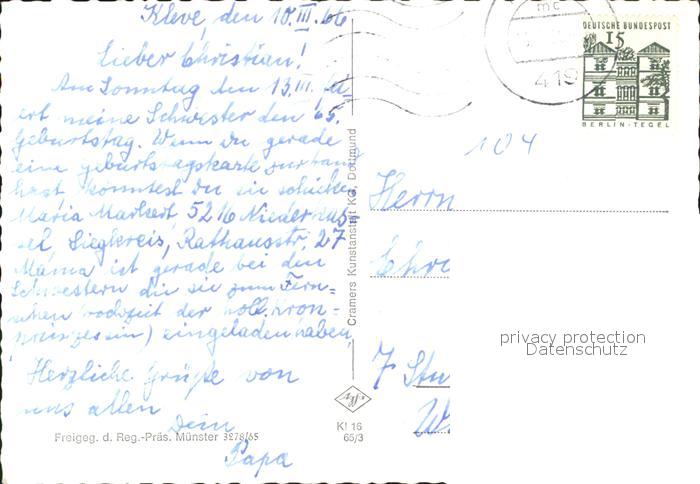 Kleve, den 10.III.66
Lieber Christian!
Am Sonntag den 13.III. fei-
ert meine Schwester den 65.
Geburtstag. Wenn du gerade
eine Geburtstagskarte zur Hand
hast konntest Du sie schicken
Maria Markert 5216 Niederkas-
sel, Siegkreis, Rathausstr. 27
Mama ist gerade bei den
Schwestern die sie zum Fern=
sehen (Hochzeit der holl. Kron=
prinzessin) eingeladen haben.
Herzliche Grüße von
uns allen
Dein
Papa
Freigeg. d. Reg.-Präs. Münster 3278/65
Cramers Kunstanstalt KG, Dortmund
Kl 16
65/3
DEUTSCHE BUNDESPOST
15
BERLIN-TEGEL
mc
419
104
Herrn
Chri
7 Stu
W.
privacy protection
Datenschutz